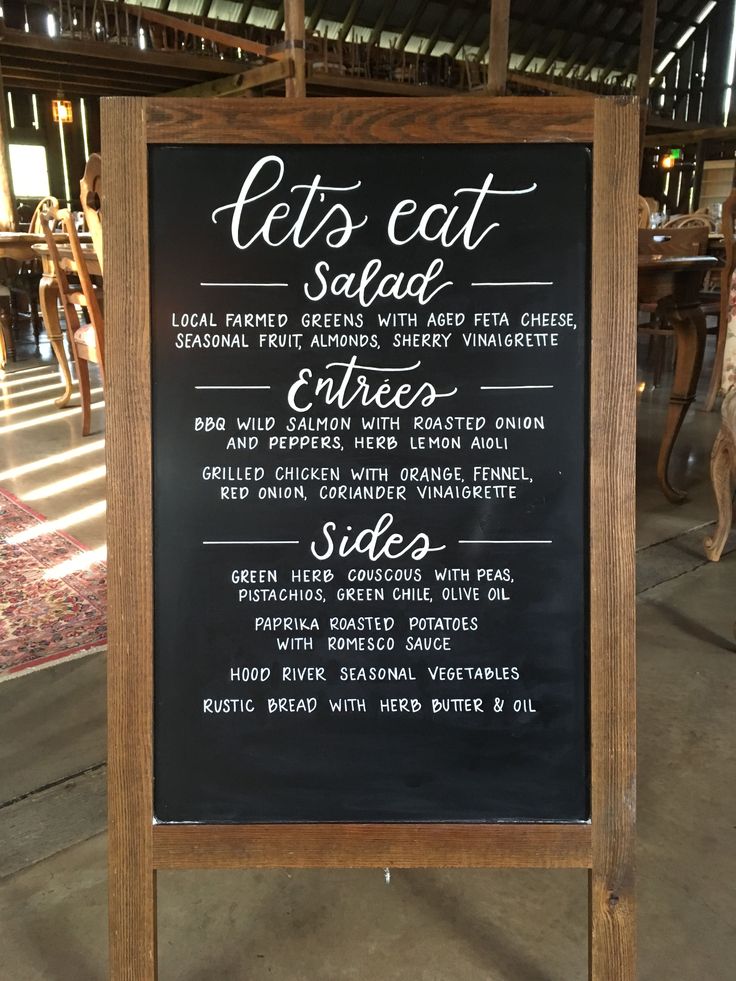 let's eat
Salad
LOCAL FARMED GREENS WITH AGED FETA CHEESE,
SEASONAL FRUIT, ALMONDS, SHERRY VINAIGRETTE
Entrées
BBQ WILD SALMON WITH ROASTED ONION
AND PEPPERS, HERB LEMON AIOLI
GRILLED CHICKEN WITH ORANGE, FENNEL,
RED ONION, CORIANDER VINAIGRETTE
Sides
GREEN HERB COUSCOUS WITH PEAS,
PISTACHIOS, GREEN CHILE, OLIVE OIL
PAPRIKA ROASTED POTATOES
WITH ROMESCO SAUCE
HOOD RIVER SEASONAL VEGETABLES
RUSTIC BREAD WITH HERB BUTTER & OIL